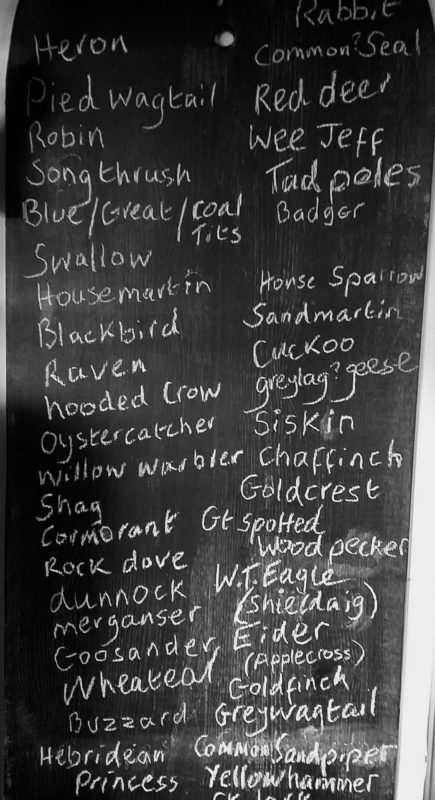 Heron
Pied Wagtail
Robin
Songthrush
Blue/Great/coal
Tits
Swallow
Housemartin
Blackbird
Raven
hooded Crow
Oystercatcher
Willow warbler
Shag
Cormorant
Rock dove
dunnock
merganser
Goosander
Wheatear
Buzzard
Hebridean
Princess
Rabbit
Common? Seal
Red deer
Wee Jeff
Tadpoles
Badger
House Sparrow
Sandmartin
Cuckoo
greylag? geese
Siskin
Chaffinch
Goldcrest
Gt spotted
Woodpecker
W.T. Eagle
(Shieldaig)
Eider
(Applecross)
Goldfinch
Greywagtail
Common Sandpiper
Yellowhammer